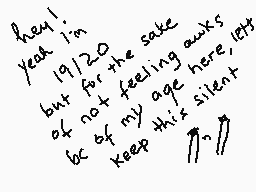 hey!
yeah i'm
19/20
but for the sake
of not feeling awks
bc of my age here, lets
keep this silent